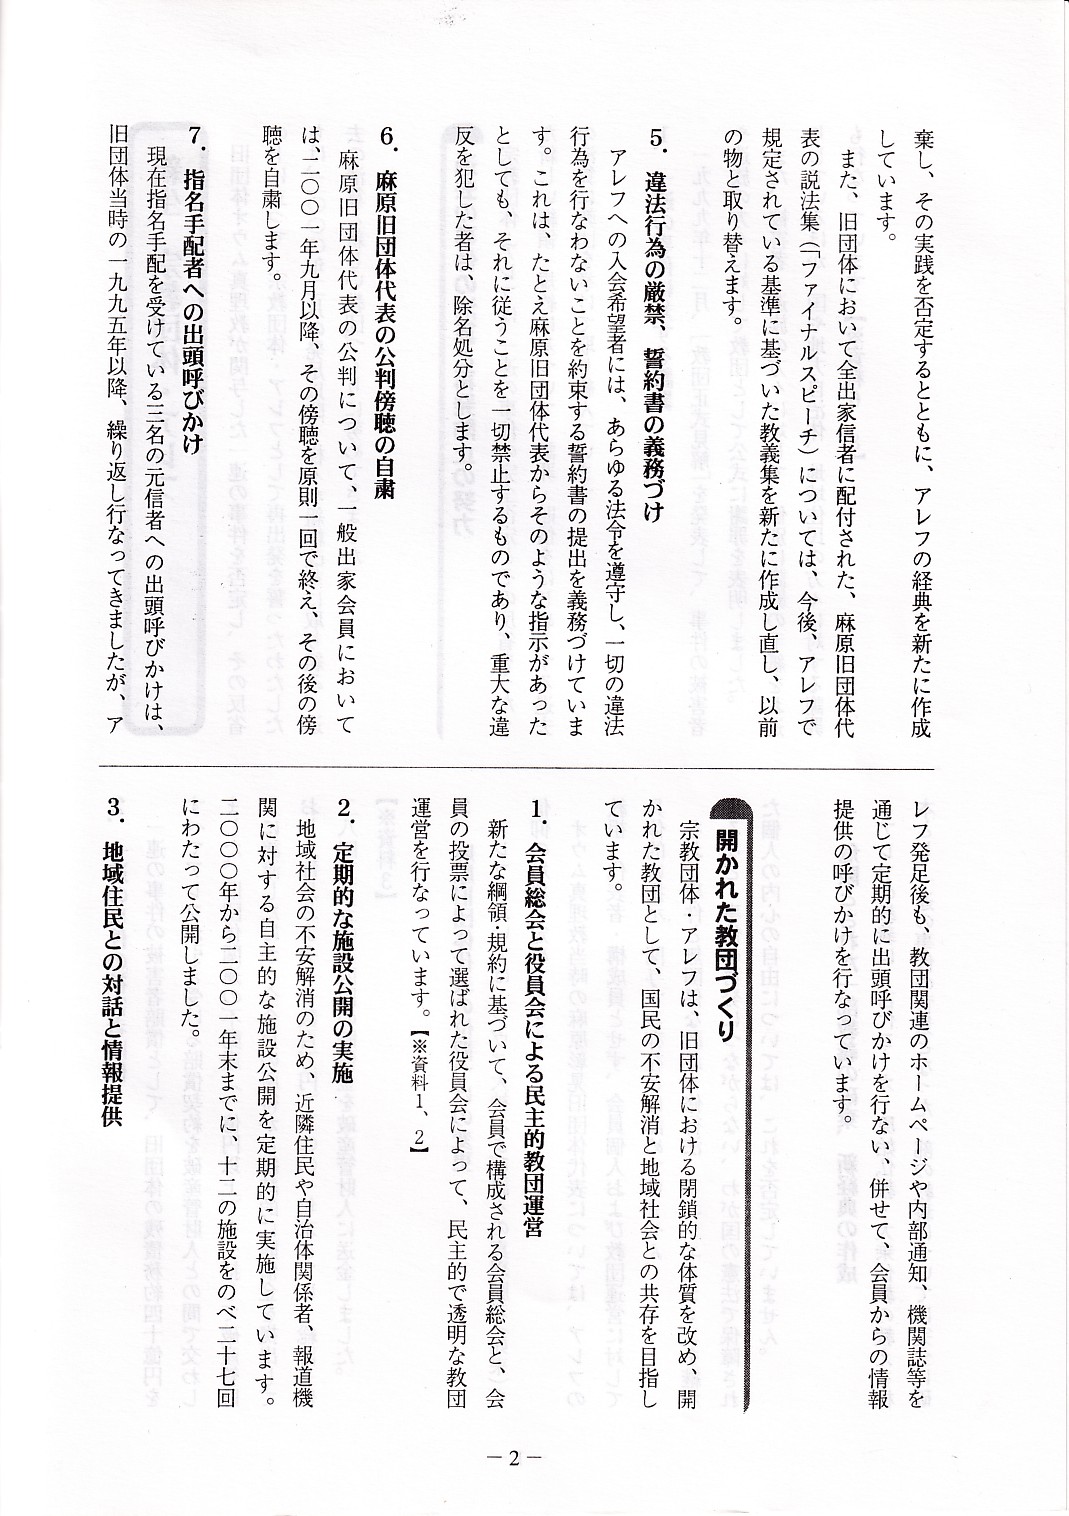 棄し、その実践を否定するとともに、アレフの経典を新たに作成
しています。
また、旧団体において全出家信者に配付された、麻原旧団体代
表の説法集（「ファイナルスピーチ）については、今後、アレフで
規定されている基準に基づいた教義集を新たに作成し直し、以前
の物と取り替えます。
5．違法行為の厳禁、誓約書の義務づけ
アレフへの入会希望者には、あらゆる法令を遵守し、一切の違法
行為を行なわないことを約束する誓約書の提出を義務づけていま
す。これは、たとえ麻原旧団体代表からそのような指示があった
としても、それに従うことを一切禁止するものであり、重大な違
反を犯した者は、除名処分とします。
6．麻原旧団体代表の公判傍聴の自粛
麻原旧団体代表の公判について、一般出家会員において
は、二〇〇一年九月以降、その傍聴を原則一回で終え、その後の傍
聴を自粛します。
7．指名手配者への出頭呼びかけ
現在指名手配を受けている三名の元信者への出頭呼びかけは、
旧団体当時の一九九五年以降、繰り返し行なってきましたが、ア
レフ発足後も、教団関連のホームページや内部通知、機関誌等を
通じて定期的に出頭呼びかけを行ない、併せて、会員からの情報
提供の呼びかけを行なっています。
開かれた教団づくり
宗教団体・アレフは、旧団体における閉鎖的な体質を改め、開
かれた教団として、国民の不安解消と地域社会との共存を目指し
ています。
1．会員総会と役員会による民主的教団運営
新たな綱領・規約に基づいて、会員で構成される会員総会と、会
員の投票によって選ばれた役員会によって、民主的で透明な教団
運営を行なっています。【※資料1、2】
2．定期的な施設公開の実施
地域社会の不安解消のため、近隣住民や自治体関係者、報道機
関に対する自主的な施設公開を定期的に実施しています。
二〇〇〇年から二〇〇一年末までに、十二の施設をのべ二十七回
にわたって公開しました。
3．地域住民との対話と情報提供
－2－